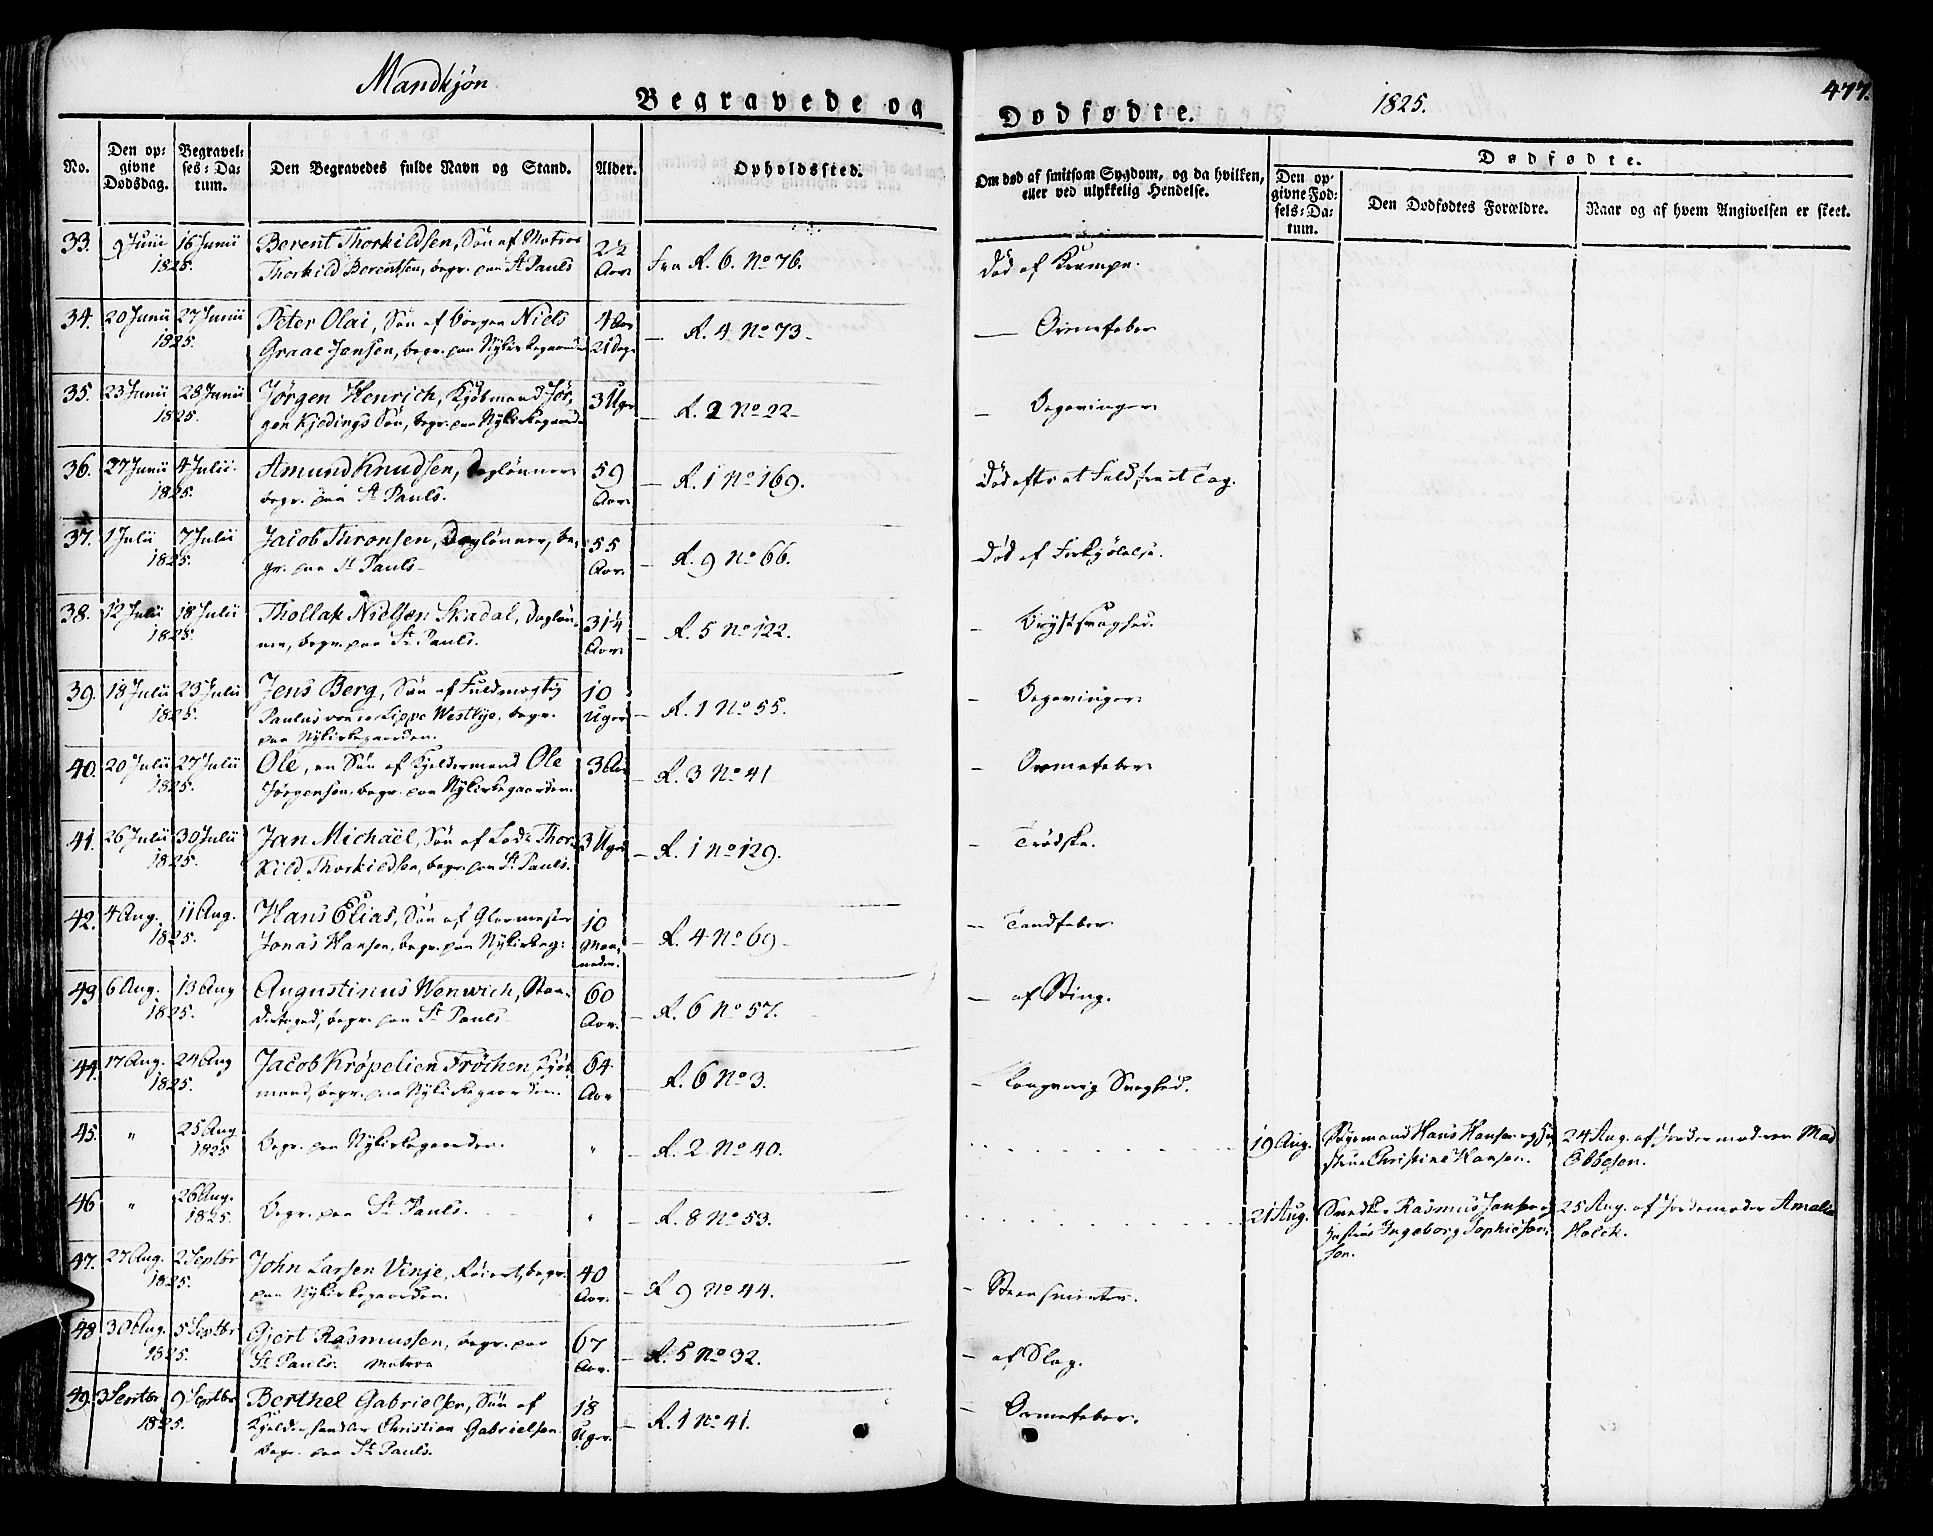 Mandkjøn
Begravede og
Dødfødte.
1825.
477.
No.
Den op-
givne
Dødsdag.
Begravel-
ses-Da-
tum.
Den Begravedes fulde Navn og Stand.
Alder.
Opholdssted.
Om død af smitsom Sygdom, og da hvilken,
eller ved ulykkelig Hendelse.
Dødfødte.
Den op-
givne Fød-
sels-Da-
tum.
Den Dødfødtes Forældre.
Naar og af hvem Angivelsen er skeet.
33. 9 Junii 1825. 16 Junii Berent Thorkildsen, Søn af Matros
Thorkild Berentsen, begr. paa St Pauls
2½ Aar
Fra R. 6. No 76.
Død af Krampe.
34. 20 Junii 27 Junii 1825. Peter Olai, Søn af Borger Niels
Graae Jensen, begr. paa Nykirkegaarden
4 Aar 21 Dage
— R. 4 No 73
— Ormefeber
35. 23 Junii 28 Junii 1825. Jørgen Henrich, Kjøbmand Jør-
gen Kjedings Søn, begr. paa Nykirkegaarden
3 Uger
— R. 2 No 22
— Begevinger
36. 27 Junii 4 Julii 1825. Amund Knudsen, Daglønner
begr. paa St Pauls.
59 Aar
— R. 1 No 169.
Død efter et Fald fra et Tag.
37. 1 Julii 7 Julii 1825. Jacob Thronsen, Daglønner, be-
gr. paa St Pauls
55 Aar
— R. 9 No 66.
Død af Forkjølelse.
38. 12 Julii 18 Julii 1825. Thollak Nielsen Skadal, Dagløn-
ner, begr. paa St Pauls.
31¼ Aar
— R. 5 No 122.
— Brystsvaghed.
39. 18 Julii 23 Julii 1825. Jens Berg, Søn af Fuldmægtig
Paulus von der Lippe Westbye, begr.
paa Nykirkegaarden.
10 Uger
— R. 1 No 55.
— Begevinger
40. 20 Julii 27 Julii 1825. Ole, en Søn af Kjeldermand Ole
Jørgensen, begr. paa Nykirkegaarden.
3 Aar
— R. 3 No 41
— Ormefeber
41. 26 Julii 30 Julii 1825. Jan Michaël, Søn af Lods Thor-
kild Thorkildsen, begr. paa St Pauls.
3 Uger
— R. 1 No 129.
— Trødske.
42. 4 Aug. 11 Aug. 1825. Hans Elias, Søn af Glarmester
Jonas Hansen, begr. paa Nykirkeg:
10 Maa-
neder.
— R. 4 No 69
— Tandfeber
43 6 Aug. 13 Aug 1825. Augustinus Wenwich,
begr. paa St Pauls
60 Aar.
— R. 6 No 57.
— af Sting.
44. 17 Aug. 24 Aug 1825. Jacob Krøpelien Frøchen, Kjøb-
mand, begr. paa Nykirkegaarden.
64 Aar
— R. 6 No 3.
— Langvarig Svaghed.
45. " 25 Aug 1825 Begr. paa Nykirkegaarden.
"
— R. 2 No 40.
19 Aug. Søgemand Hans Hansen og Hu-
strue Christine Hansen.
24 Aug. af Jordemoderen Mad
Ebbesen.
46 " 26 Aug. 1825. Begr. paa St Pauls.
"
— R. 8 No 53.
21 Aug. Snedker Rasmus Jansen og
Hustrue Ingeborg Sophie Jan-
sen.
25 Aug. af Jordemoder Amalia
Holck.
47. 27 Aug. 2 Septbr 1825. John Larsen Vinje, begr.
paa Nykirkegaarden.
40 Aar.
— R 9 No 44.
— Steensmerter.
48 30 Aug. 5 Septbr 1825. Gjert Rasmussen, begr. paa
St Pauls. Matros
67 Aar.
— R. 5 No 32.
— af Slag.
49. 3 Septbr 9 Septbr 1825. Berthel Gabrielsen, Søn af
Kjelderhandler Christian Gabrielsen
begr. paa St Pauls.
18 Uger.
— R. 1 No 41.
— Ormefeber.